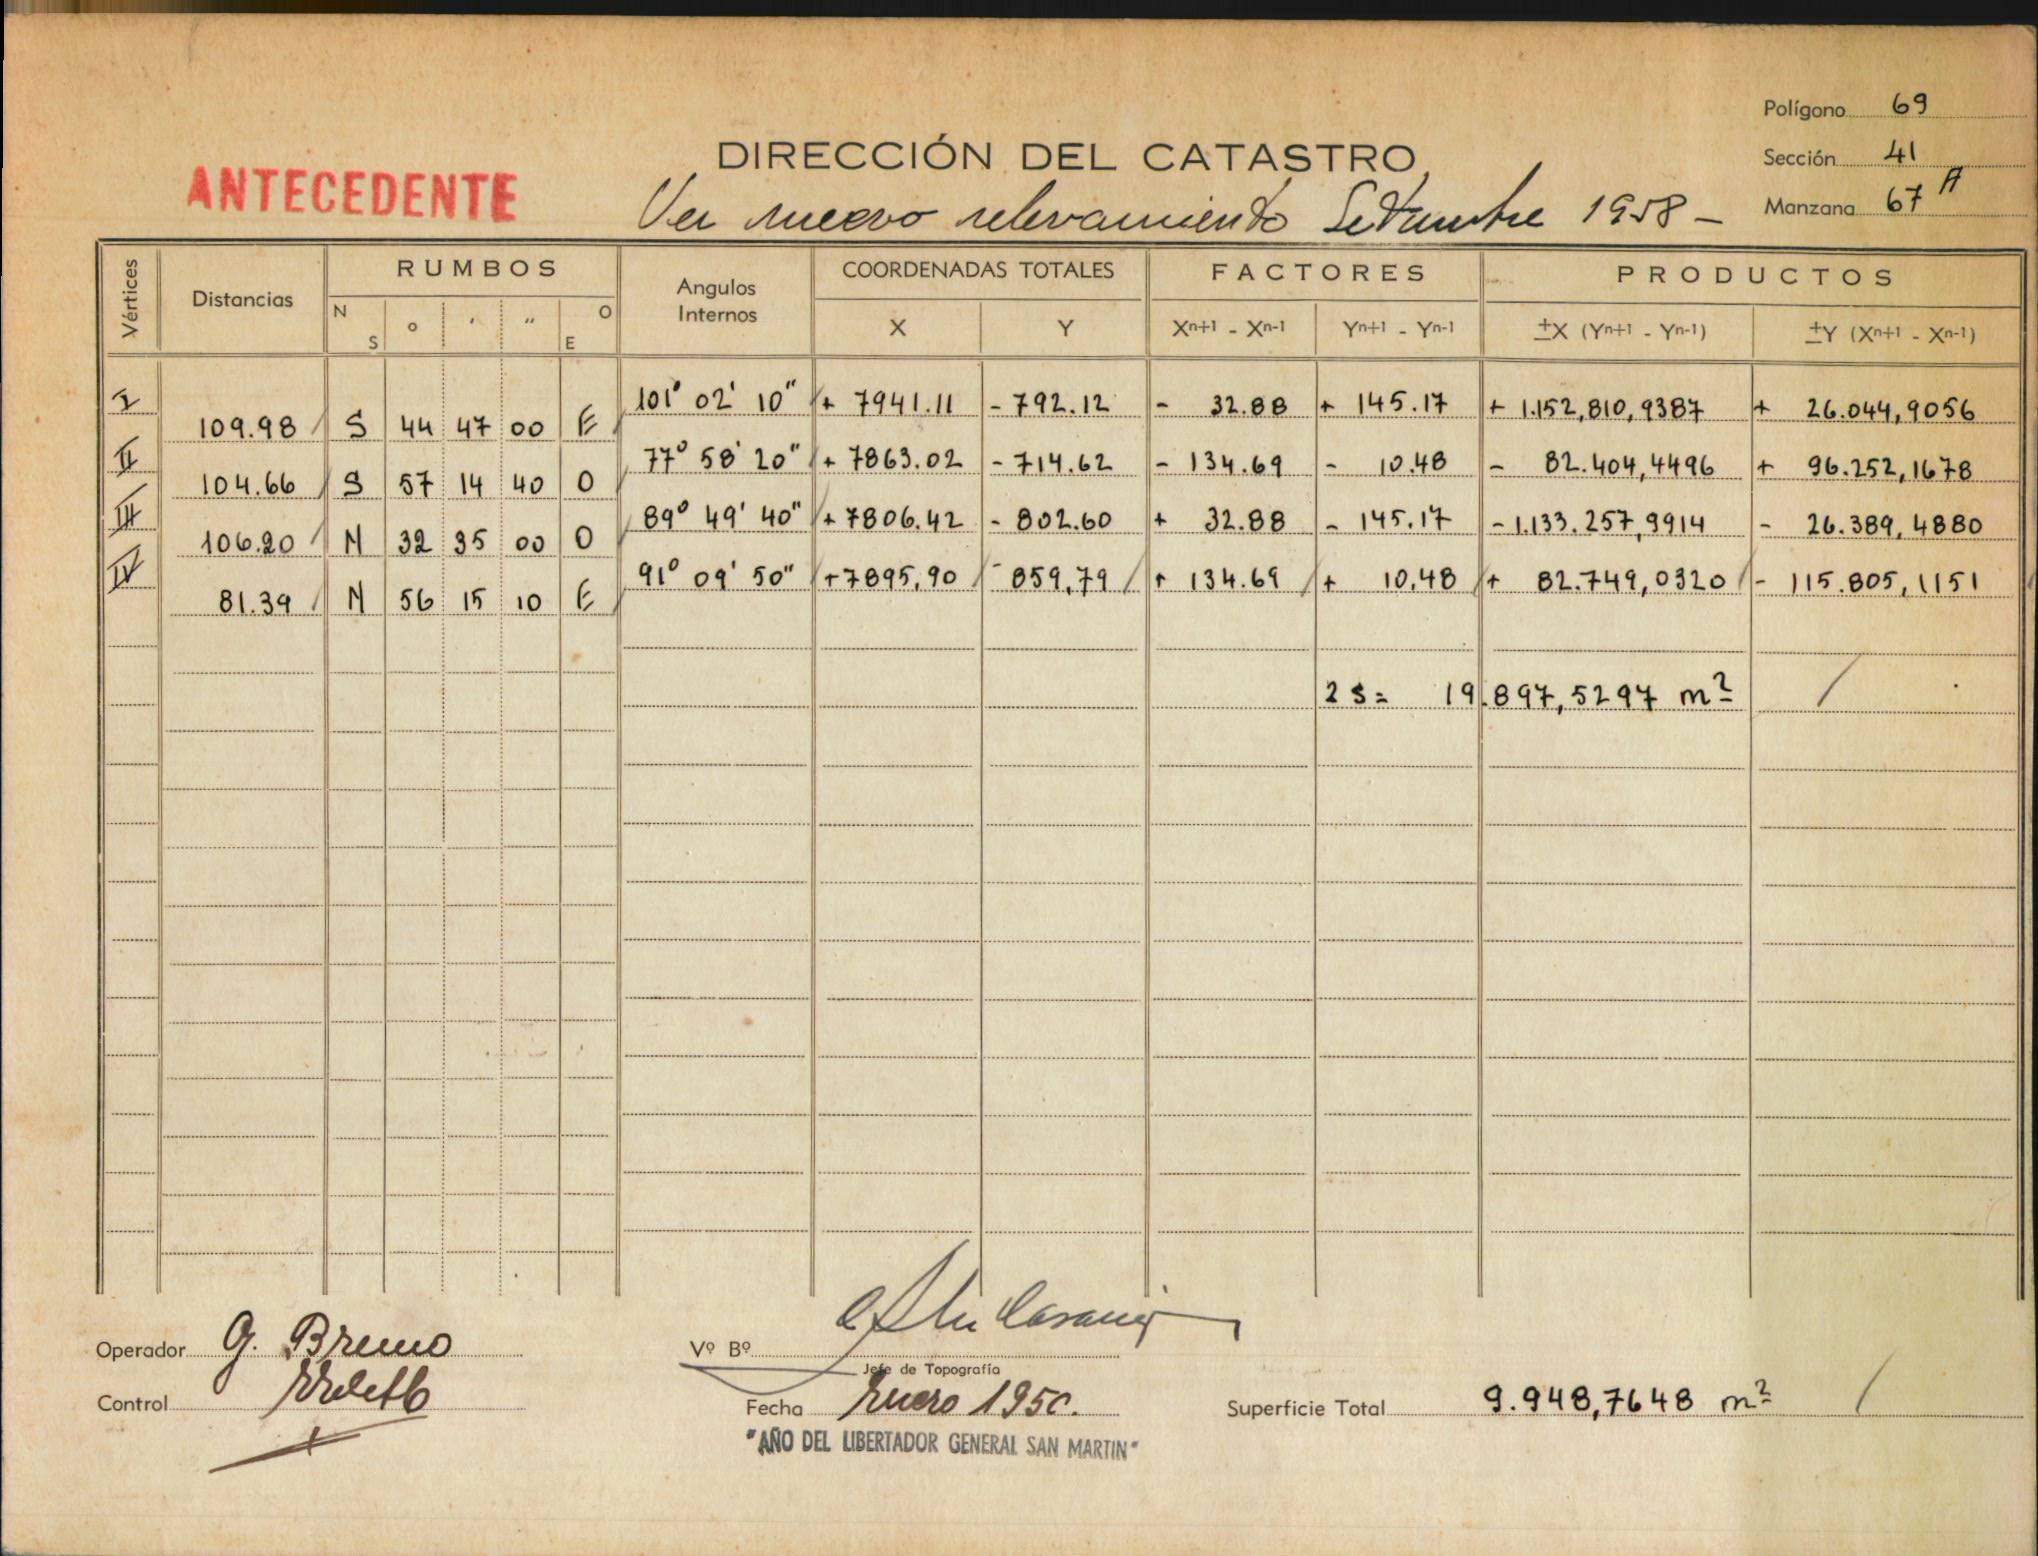 Polígono 69
DIRECCIÓN DEL CATASTRO
Sección 41
ANTECEDENTE
Ver nuevo relevamiento Setiembre 1958 -
Manzana 67 A
Vértices Distancias RUMBOS Angulos Internos COORDENADAS TOTALES FACTORES PRODUCTOS
N S o ' " O E X Y Xn+1 - Xn-1 Yn+1 - Yn-1 ±X (Yn+1 - Yn-1) ±Y (Xn+1 - Xn-1)
I 101° 02' 10" + 7941.11 - 792.12 - 32.88 + 145.17 + 1.152,810,9387 + 26.044,9056
109.98 S 44 47 00 E
II 77° 58' 20" + 7863.02 - 714.62 - 134.69 - 10.48 - 82.404,4496 + 96.252,1678
104.66 S 57 14 40 O
III 89° 49' 40" + 7806.42 - 802.60 + 32.88 - 145.17 - 1.133.257,9914 - 26.389,4880
106.20 N 32 35 00 O
IV 91° 09' 50" + 7895,90 - 859,79 + 134.69 + 10,48 + 82.749,0320 - 115.805,1151
81.39 N 56 15 10 E
2 S = 19.897,5297 m²
Operador G. Bruno
Vº Bº
Jefe de Topografía
Control
Fecha Enero 1950.
Superficie Total 9.948,7648 m²
"AÑO DEL LIBERTADOR GENERAL SAN MARTIN"